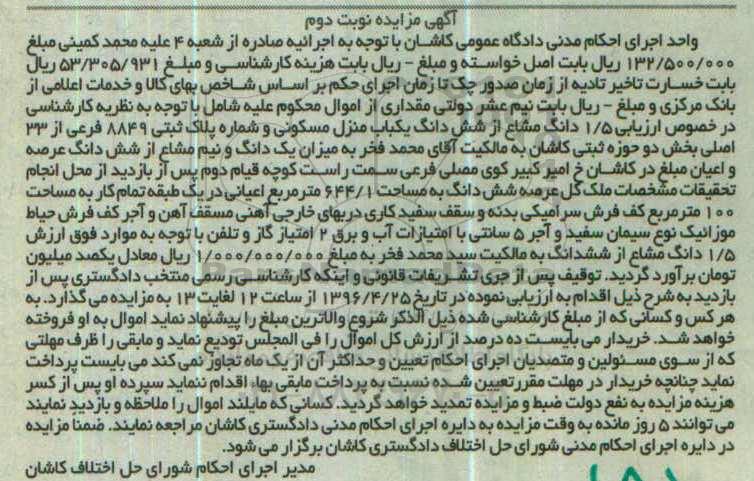 آگهی مزایده نوبت دوم
واحد اجرای احکام مدنی دادگاه عمومی کاشان با توجه به اجرائیه صادره از شعبه ۴ علیه محمد کمینی مبلغ
۱۳۲/۵۰۰/۰۰۰ ریال بابت اصل خواسته و مبلغ – ریال بابت هزینه کارشناسی و مبلغ ۵۳/۳۰۵/۹۳۱ ریال
بابت خسارت تاخیر تادیه از زمان صدور چک تا زمان اجرای حکم بر اساس شاخص بهای کالا و خدمات اعلامی از
بانک مرکزی و مبلغ – ریال بابت نیم عشر دولتی مقداری از اموال محکوم علیه شامل با توجه به نظریه کارشناسی
در خصوص ارزیابی ۱/۵ دانگ مشاع از شش دانگ یکباب منزل مسکونی و شماره پلاک ثبتی ۸۸۴۹ فرعی از ۳۳
اصلی بخش دو حوزه ثبتی کاشان به مالکیت آقای محمد فخر به میزان یک دانگ و نیم مشاع از شش دانگ عرصه
و اعیان مبلغ در کاشان خ امیر کبیر کوی مصلی فرعی سمت راست کوچه قیام دوم پس از بازدید از محل انجام
تحقیقات مشخصات ملک کل عرصه شش دانگ به مساحت ۶۴۴/۱ متر مربع اعیانی در یک طبقه تمام کار به مساحت
۱۰۰ متر مربع کف فرش سرامیکی بدنه و سقف سفید کاری دربهای خارجی آهنی مسقف آهن و آجر کف فرش حیاط
موزائیک نوع سیمان سفید و آجر ۵ سانتی با امتیازات آب و برق ۲ امتیاز گاز و تلفن با توجه به موارد فوق ارزش
۱/۵ دانگ مشاع از ششدانگ به مالکیت سید محمد فخر به مبلغ ۱/۰۰۰/۰۰۰/۰۰۰ ریال معادل یکصد میلیون
تومان برآورد گردید. توقیف پس از جری تشریفات قانونی و اینکه کارشناسی رسمی منتخب دادگستری پس از
بازدید به شرح ذیل اقدام به ارزیابی نموده در تاریخ ۱۳۹۶/۴/۲۵ از ساعت ۱۲ لغایت ۱۳ به مزایده می گذارد. به
هر کس و کسانی که از مبلغ کارشناسی شده ذیل الذکر شروع والاترین مبلغ را پیشنهاد نماید اموال به او فروخته
خواهد شد. خریدار می بایست ده درصد از ارزش کل اموال را فی المجلس تودیع نماید و مابقی را ظرف مهلتی
که از سوی مسئولین و متصدیان اجرای احکام تعیین و حداکثر آن از یک ماه تجاوز نمی کند می بایست پرداخت
نماید چنانچه خریدار در مهلت مقرر تعیین شده نسبت به پرداخت مابقی بهاء اقدام ننماید سپرده او پس از کسر
هزینه مزایده به نفع دولت ضبط و مزایده تمدید خواهد گردید. کسانی که مایلند اموال را ملاحظه و بازدید نمایند
می توانند ۵ روز مانده به وقت مزایده به دایره اجرای احکام مدنی دادگستری کاشان مراجعه نمایند. ضمنا مزایده
در دایره اجرای احکام مدنی شورای حل اختلاف دادگستری کاشان برگزار می شود.
مدیر اجرای احکام شورای حل اختلاف کاشان